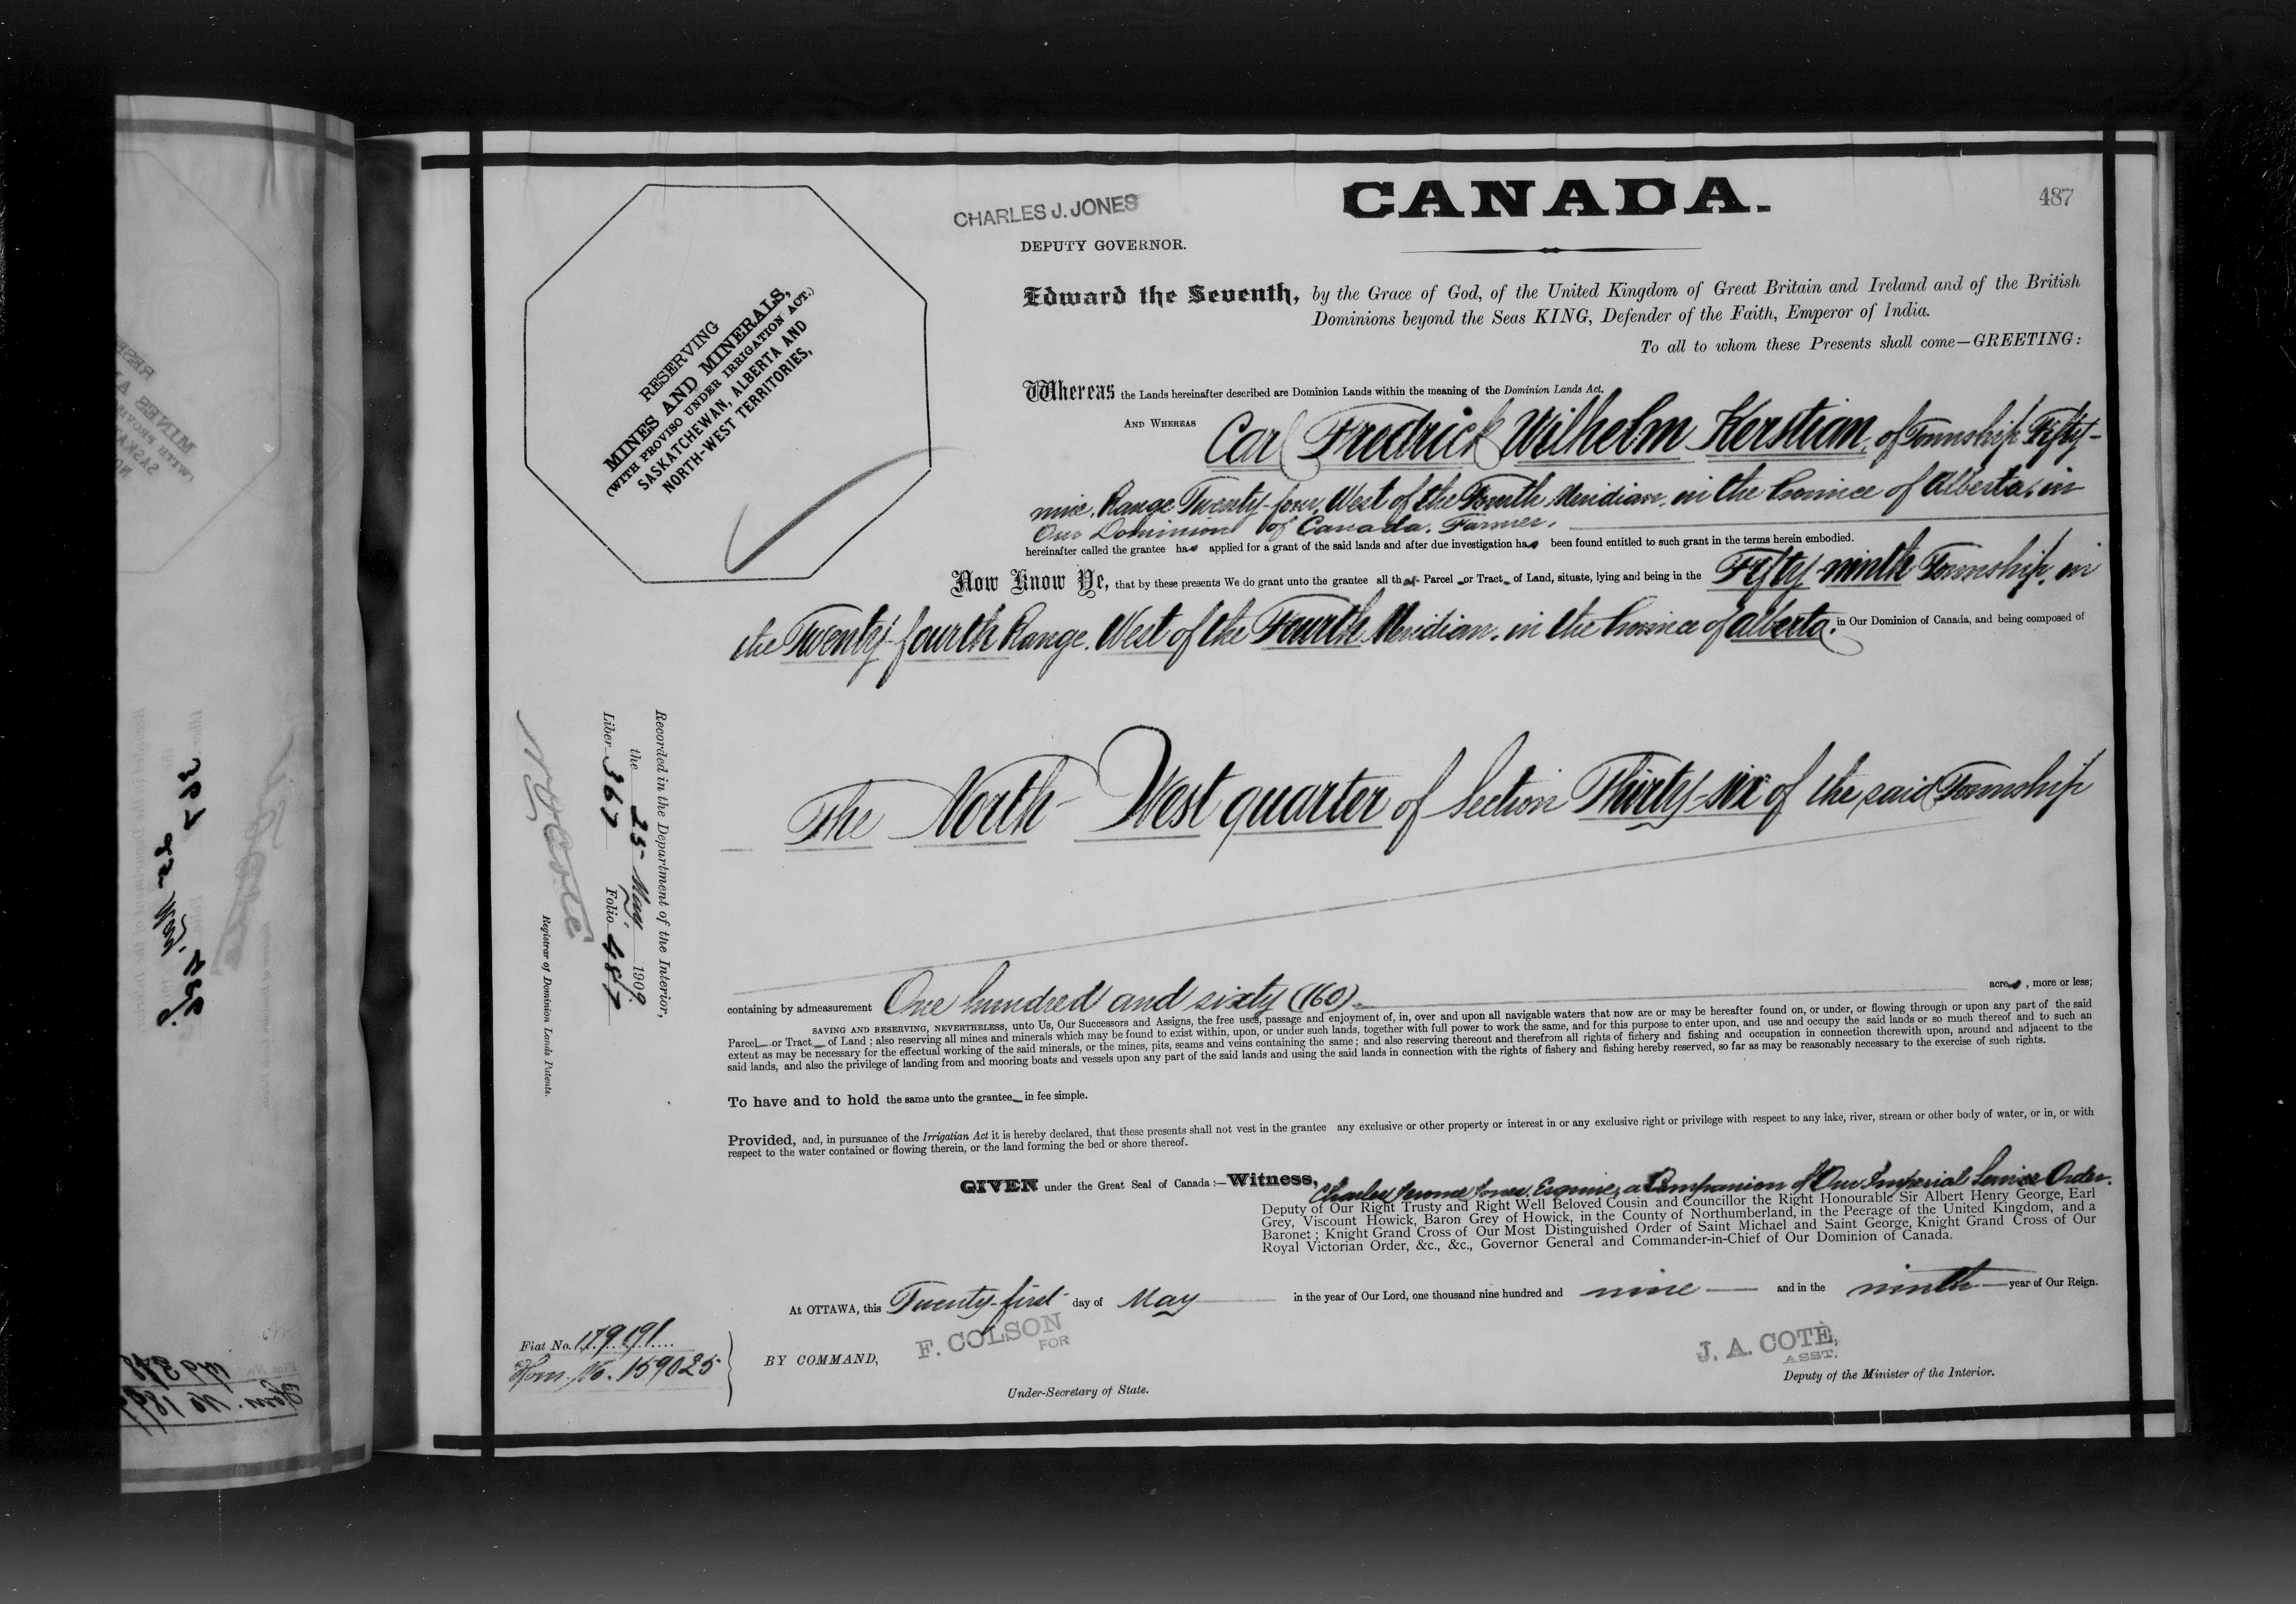 CANADA.
487
CHARLES J. JONES
DEPUTY GOVERNOR.
RESERVING
MINES AND MINERALS,
(WITH PROVISO UNDER IRRIGATION ACT.)
SASKATCHEWAN, ALBERTA AND
NORTH-WEST TERRITORIES,
Edward the Seventh, by the Grace of God, of the United Kingdom of Great Britain and Ireland and of the British
Dominions beyond the Seas KING, Defender of the Faith, Emperor of India.
To all to whom these Presents shall come—GREETING:
Whereas the Lands hereinafter described are Dominion Lands within the meaning of the Dominion Lands Act.
AND WHEREAS Carl Fredrick Wilhelm Kerstian, of Township Fifty-
nine, Range Twenty-four, West of the Fourth Meridian, in the Province of Alberta, in
Our Dominion of Canada, Farmer,
hereinafter called the grantee has applied for a grant of the said lands and after due investigation has been found entitled to such grant in the terms herein embodied.
Now Know Ye, that by these presents We do grant unto the grantee all that Parcel or Tract of Land, situate, lying and being in the Fifty-ninth Township, in
the Twenty-fourth Range, West of the Fourth Meridian, in the Province of Alberta, in Our Dominion of Canada, and being composed of
The North-West quarter of Section Thirty-six of the said Township
containing by admeasurement One hundred and sixty (160) acres, more or less;
SAVING AND RESERVING, NEVERTHELESS, unto Us, Our Successors and Assigns, the free uses, passage and enjoyment of, in, over and upon all navigable waters that now are or may be hereafter found on, or under, or flowing through or upon any part of the said
Parcel or Tract of Land; also reserving all mines and minerals which may be found to exist within, upon, or under such lands, together with full power to work the same, and for this purpose to enter upon, and use and occupy the said lands or so much thereof and to such an
extent as may be necessary for the effectual working of the said minerals, or the mines, pits, seams and veins containing the same; and also reserving thereout and therefrom all rights of fishery and fishing and occupation in connection therewith upon, around and adjacent to the
said lands, and also the privilege of landing from and mooring boats and vessels upon any part of the said lands and using the said lands in connection with the rights of fishery and fishing hereby reserved, so far as may be reasonably necessary to the exercise of such rights.
To have and to hold the same unto the grantee in fee simple.
Provided, and, in pursuance of the Irrigatian Act it is hereby declared, that these presents shall not vest in the grantee any exclusive or other property or interest in or any exclusive right or privilege with respect to any lake, river, stream or other body of water, or in, or with
respect to the water contained or flowing therein, or the land forming the bed or shore thereof.
GIVEN under the Great Seal of Canada:—Witness, Charles Jerome Jones, Esquire, a Companion of Our Imperial Service Order,
Deputy of Our Right Trusty and Right Well Beloved Cousin and Councillor the Right Honourable Sir Albert Henry George, Earl
Grey, Viscount Howick, Baron Grey of Howick, in the County of Northumberland, in the Peerage of the United Kingdom, and a
Baronet; Knight Grand Cross of Our Most Distinguished Order of Saint Michael and Saint George, Knight Grand Cross of Our
Royal Victorian Order, &c., &c., Governor General and Commander-in-Chief of Our Dominion of Canada.
At OTTAWA, this Twenty-first day of May in the year of Our Lord, one thousand nine hundred and nine and in the ninth year of Our Reign.
BY COMMAND,
F. COLSON
FOR
Under-Secretary of State.
J. A. COTÈ,
ASST.
Deputy of the Minister of the Interior.
Fiat No. 179191
Hom. No. 159025
Recorded in the Department of the Interior,
the 25 May 1909
Liber 367 Folio 487
N. O. Coté
Registrar of Dominion Lands Patents.